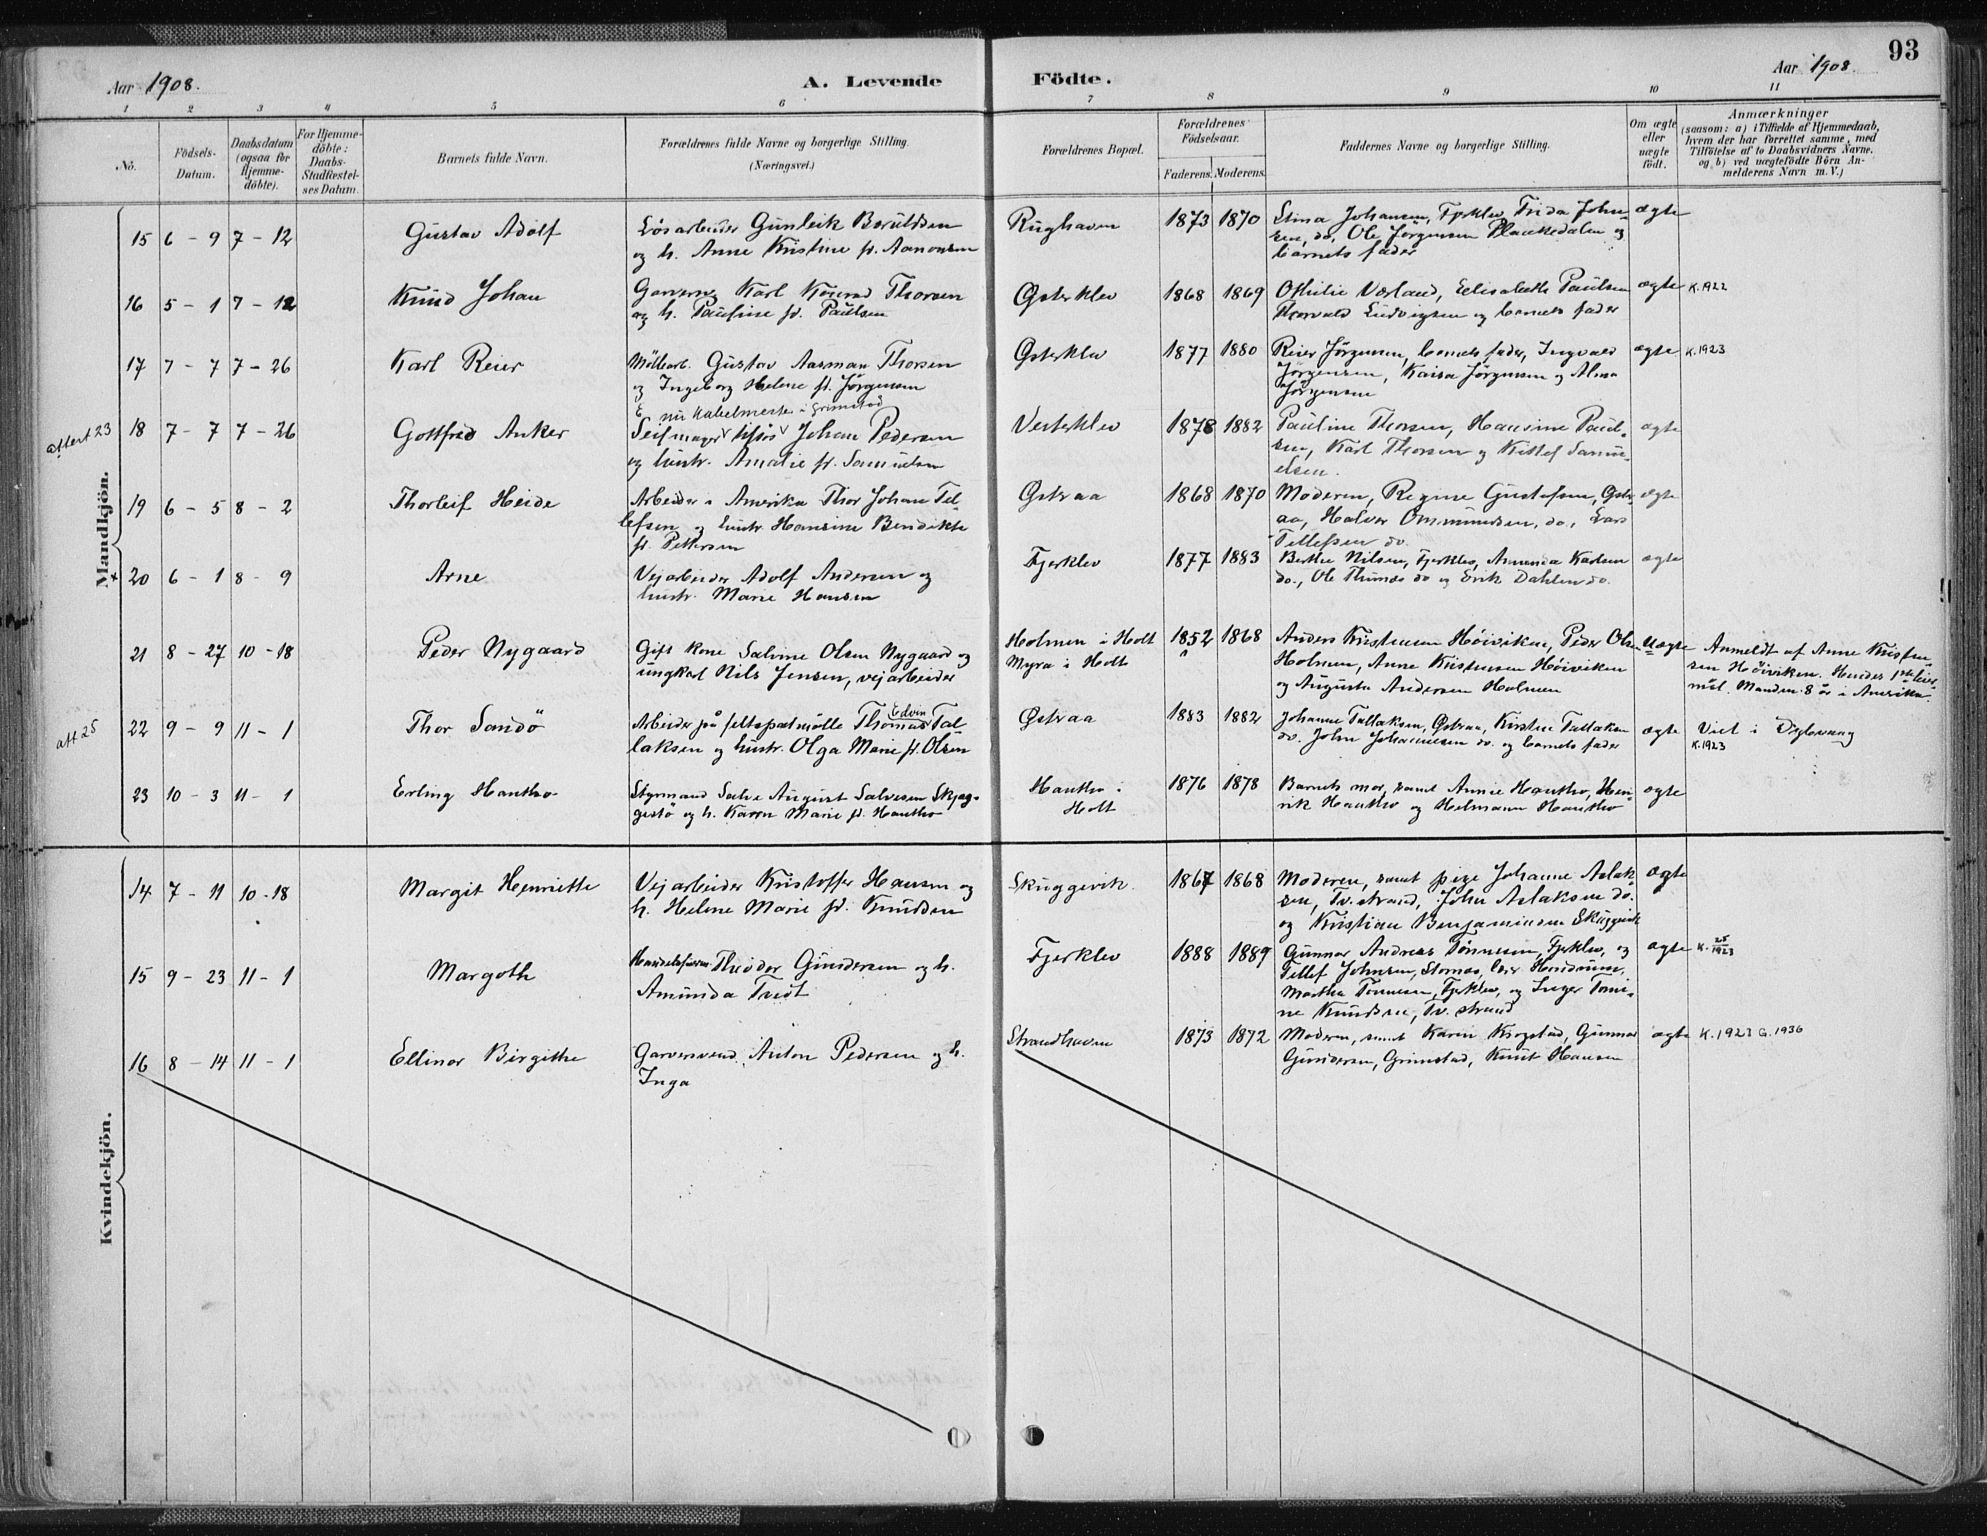 93
Aar 1908.
A. Levende Födte.
Aar 1908.
1 2 3 4 5 6 7 8 9 10 11
No.
Födsels-Datum.
Daabsdatum (ogsaa for Hjemme-döbte).
For Hjemme-döbte: Daabs-Stadfæstel-ses Datum.
Barnets fulde Navn.
Forældrenes fulde Navne og borgerlige Stilling. (Næringsvei.)
Forældrenes Bopæl.
Forældrenes Födselsaar.
Faderens. Moderens.
Faddernes Navne og borgerlige Stilling.
Om ægte eller uægte födt.
Anmærkninger
(saasom: a) i Tilfælde af Hjemmedaab, hvem der har forrettet samme, med Tilföielse af to Daabsvidners Navne, og b) ved uægtefödte Börn An-melderens Navn m. V.)
Mandkjön.
15 6 - 9 7 - 12 Gustav Adolf
Løsarbeider Gunleik Beruldsen
og h. Anne Kristine f. Aanonsen
Rughaven 1873 1870
Stina Johansen, Fjerklev, Frida John-
sen, do, Ole Jørgensen Plankedalen og
barnets fader
ægte
16 5 - 1 7 - 12 Knud Johan
Garversv. Karl Konrad Thorsen
og h. Pauline f. Paulsen
Østerklev 1868 1869
Othilie Værland, Elisabeth Paulsen
Thorvald Ludvigsen og barnets fader
ægte K.1922
17 7 - 7 7 - 26 Karl Reier
Møllearb. Gustav Aasman Thorsen
og Ingeborg Helene f. Jørgensen
Østerklev 1877 1880
Reier Jørgensen, barnets fader, Ingvald
Jørgensen, Kaisa Jørgensen og Alma
Jørgensen
ægte K.1923
attest 23
18 7 - 7 7 - 26 Gottfred Anker
nu kabelmester i Grimstad
Seilmager Johan Pedersen
og hustr. Amalie f. Samuelsen
Vesterklev 1878 1882
Pauline Thorsen, Hansine Paul-
sen, Karl Thorsen og Kittel Samu-
elsen.
ægte
19 6 - 5 8 - 2 Thorleif Heide
Arbeider i Amerika Thor Johan Tel-
lefsen og hustr. Hansine Bendikte
f. Pettersen
Østraa 1868 1870
Moderen, Regine Gustafsen, Østr-
aa, Halvor Ommundsen, do., Lars
Tellefsen do.
ægte
+ 20 6 - 1 8 - 9 Arne
Vejarbeider Adolf Andersen og
hustr. Marie Hansen
Fjerklev 1877 1883
Berthe Nilsen, Fjerklev, Amanda Karlsen
do., Ole Thomas do og Erik Dahlen do.
ægte
21 8 - 27 10 - 18 Peder Nygaard
Gift kone Salvine Olsen Nygaard og
ungkarl Nils Jensen, vejarbeider
Holmen i Holt
Myra i Holt
1852 1868
Anders Kristensen Høiviken, Peder Olsen
Holmen, Anne Kristensen Høiviken
og Augusta Andersen Holmen
Uægte
Anmeldt af Anne Kristen-
sen Høiviken. Hendes 1ste leier-
mål. Manden 8 år i Amerika.
att 25
22 9 - 9 11 - 1 Thor Sandö
Edvin
Arbeider på feltspatmølle Thomas Tal-
laksen og hustr. Olga Marie f. Olsen
Østraa 1883 1882
Johanne Tallaksen, Østraa, Kirstine Tallaksen
do. John Johannesen do. og barnets fader
ægte Viet i Dybvaag
K.1923
23 10 - 3 11 - 1 Erling Hantho
Styrmand Salve August Salvesen Skjeg-
gestø og h. Karen Marie f. Hantho
Hantho i
Holt
1876 1878
Barnets mor, samt Annie Hantho, Hen-
rik Hantho og Helmann Hantho
ægte
Kvindekjön.
14 7 - 11 10 - 18 Margit Henriette
Vejarbeider Kristoffer Hansen og
h. Helene Marie f. Knudsen
Skuggevik. 1867 1868
Moderen, samt pige Johanne Aslak-
sen, Tv.strand, John Aslaksen do.
og Kristian Benjaminsen Skuggevik
ægte
15 9 - 23 11 - 1 Margoth
Theodor Gundersen og h.
Amunda Tveit
Fjerklev 1888 1889
Gunnar Andreas Tønnesen, Fjerklev, og
Tellef Johnsen,
Martha Tønnesen, Fjerklev, og Inger Tomi-
ne Knudsen, Tv.strand
ægte K. 25/1923
16 8 - 14 11 - 1 Ellinor Birgithe
Garversvend Anton Pedersen og h.
Inga
Strandhaven 1873 1872
Moderen, samt Karen Kirgstad, Gunnar
Gundersen, Grimstad, Knut Hansen
ægte K. 1923 G. 1936